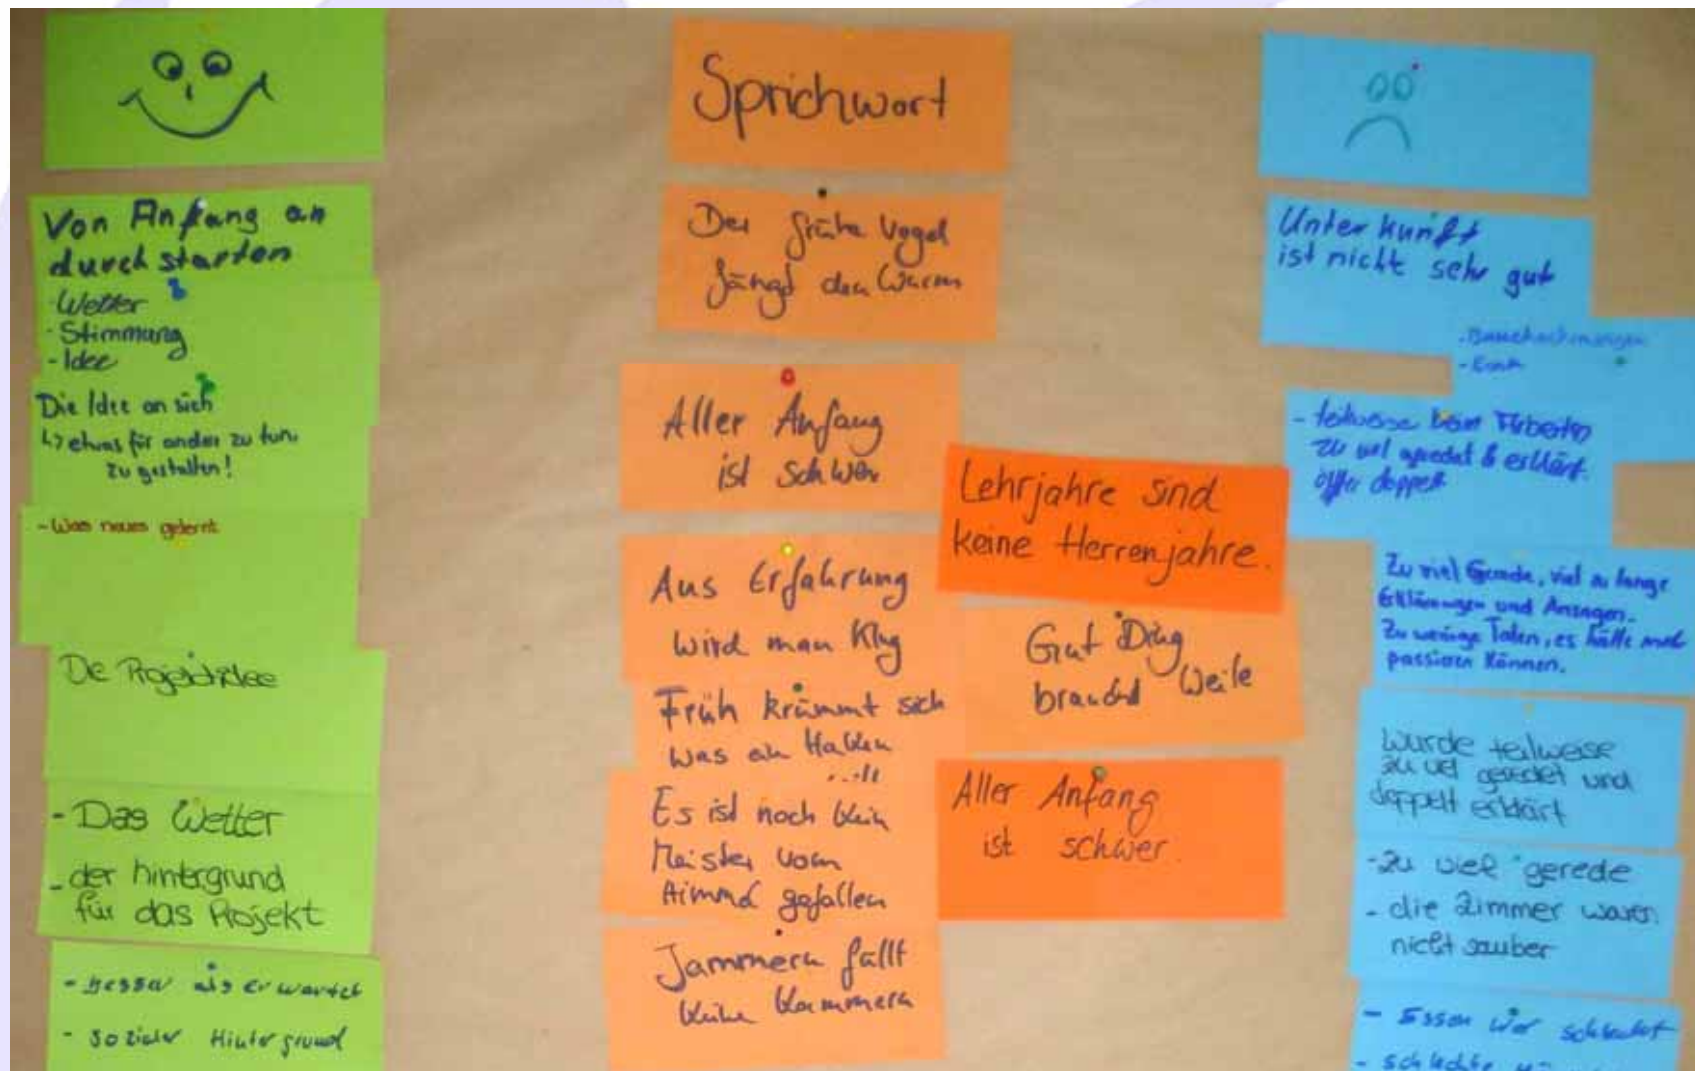 Von Anfang an
durchstarten
- Wetter
- Stimmung
- Idee
Die Idee an sich
↳ etwas für ander zu tun,
zu gestalten!
- Was neues gelernt
De Projektidee
- Das Wetter
- der hintergrund
für das Projekt
- Besser als erwartet
- sozialer Hintergrund
Sprichwort
Der frühe Vogel
fängt den Wurm
Aller Anfang
ist schwer
Aus Erfahrung
wird man klug
Früh krümmt sich
was ein Haken
Es ist noch kein
Meister vom
Himmel gefallen
Jammern füllt
keine Kammern
Lehrjahre sind
keine Herrenjahre.
Gut Ding
braucht Weile
Aller Anfang
ist schwer.
Unterkunft
ist nicht sehr gut
- teilweise beim Arbeiten
zu viel geredet & erklärt.
öfter doppelt
Zu viel Gerede, viel zu lange
Erklärungen und Ansagen.
Zu wenige Taten, es hätte mehr
passieren können.
Wurde teilweise
zu viel geredet und
doppelt erklärt
- zu viel gerede
- die Zimmer waren
nicht sauber
- Essen war schlecht
- schlechte